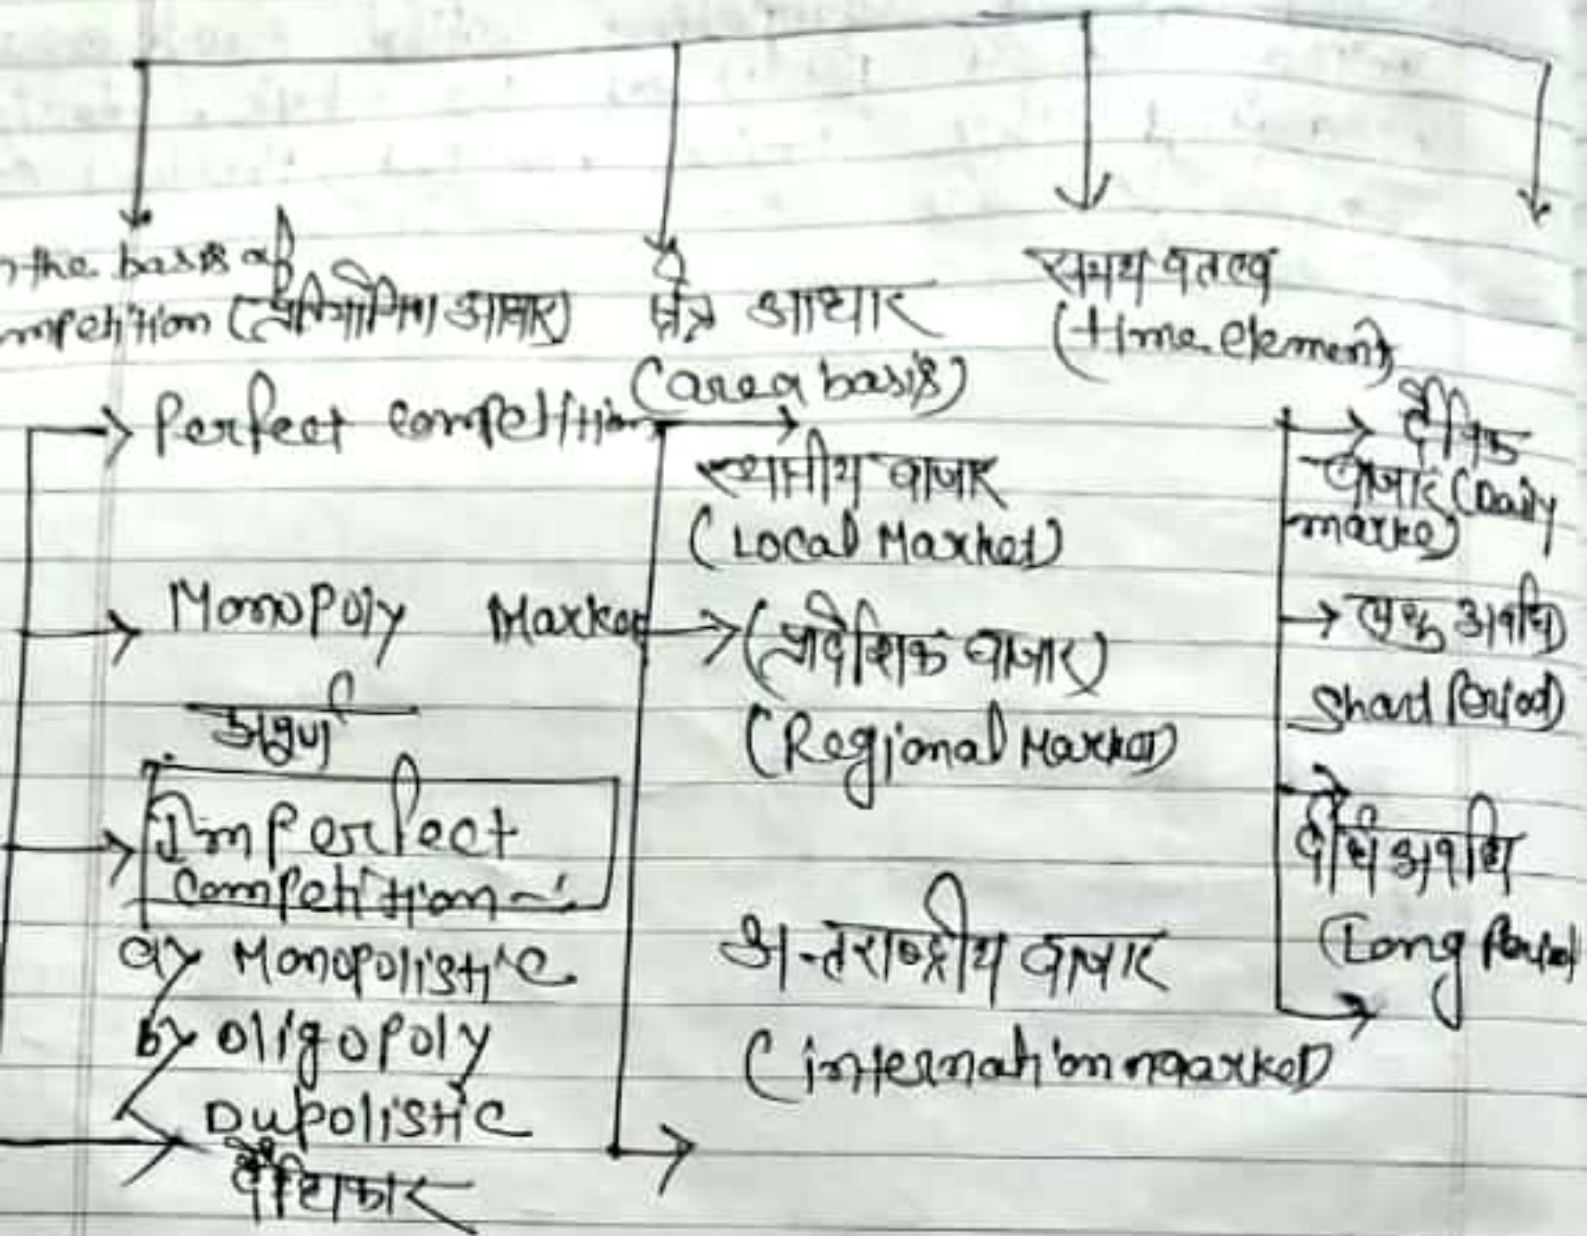 the basis of
mpetition (प्रतियोगिता आधार)
Perfect competition
Monopoly Market
अपूर्ण
Imperfect
competition -:
a> Monopolistic
b> oligopoly
Dupolistic
क्षेत्र आधार
(area basis)
स्थानीय बाजार
(Local Market)
(प्रादेशिक बाजार)
(Regional Market)
अन्तराष्ट्रीय बाजार
(internation market)
समय
(time element)
दैनिक
बाजार (Daily
marke)
अवधि
Short Period)
दीर्घ अवधि
(Long Period)